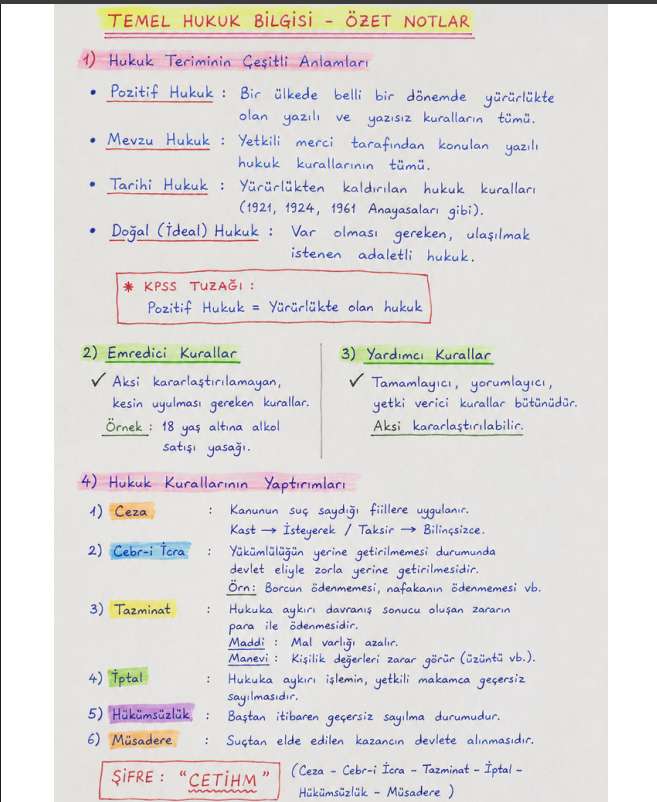 TEMEL HUKUK BİLGİSİ - ÖZET NOTLAR
1) Hukuk Teriminin Çeşitli Anlamları
• Pozitif Hukuk : Bir ülkede belli bir dönemde yürürlükte
olan yazılı ve yazısız kuralların tümü.
• Mevzu Hukuk : Yetkili merci tarafından konulan yazılı
hukuk kurallarının tümü.
• Tarihi Hukuk : Yürürlükten kaldırılan hukuk kuralları
(1921, 1924, 1961 Anayasaları gibi).
• Doğal (İdeal) Hukuk : Var olması gereken, ulaşılmak
istenen adaletli hukuk.
* KPSS TUZAĞI :
Pozitif Hukuk = Yürürlükte olan hukuk
2) Emredici Kurallar
✓ Aksi kararlaştırılamayan,
kesin uyulması gereken kurallar.
Örnek : 18 yaş altına alkol
satışı yasağı.
3) Yardımcı Kurallar
✓ Tamamlayıcı, yorumlayıcı,
yetki verici kurallar bütünüdür.
Aksi kararlaştırılabilir.
4) Hukuk Kurallarının Yaptırımları
1) Ceza : Kanunun suç saydığı fiillere uygulanır.
Kast → İsteyerek / Taksir → Bilinçsizce.
2) Cebr-i İcra : Yükümlülüğün yerine getirilmemesi durumunda
devlet eliyle zorla yerine getirilmesidir.
Örn: Borcun ödenmemesi, nafakanın ödenmemesi vb.
3) Tazminat : Hukuka aykırı davranış sonucu oluşan zararın
para ile ödenmesidir.
Maddi : Mal varlığı azalır.
Manevi : Kişilik değerleri zarar görür (üzüntü vb.).
4) İptal : Hukuka aykırı işlemin, yetkili makamca geçersiz
sayılmasıdır.
5) Hükümsüzlük : Baştan itibaren geçersiz sayılma durumudur.
6) Müsadere : Suçtan elde edilen kazancın devlete alınmasıdır.
ŞİFRE : "CETİHM"
(Ceza - Cebr-i İcra - Tazminat - İptal -
Hükümsüzlük - Müsadere )